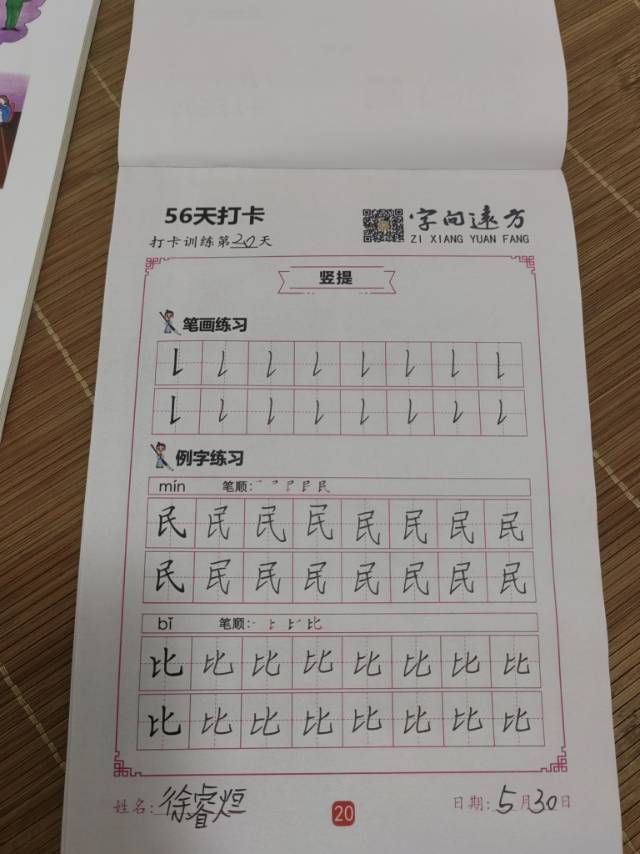 56天打卡
字向远方
打卡训练第20天
ZI XIANG YUAN FANG
竖提
笔画练习
例字练习
mín 笔顺:
民 民 民 民 民 民 民 民
民 民 民 民 民 民 民 民
bǐ 笔顺:
比 比 比 比 比 比 比 比
比 比 比 比 比 比 比 比
姓名:徐睿烜
20
日期:5月30日